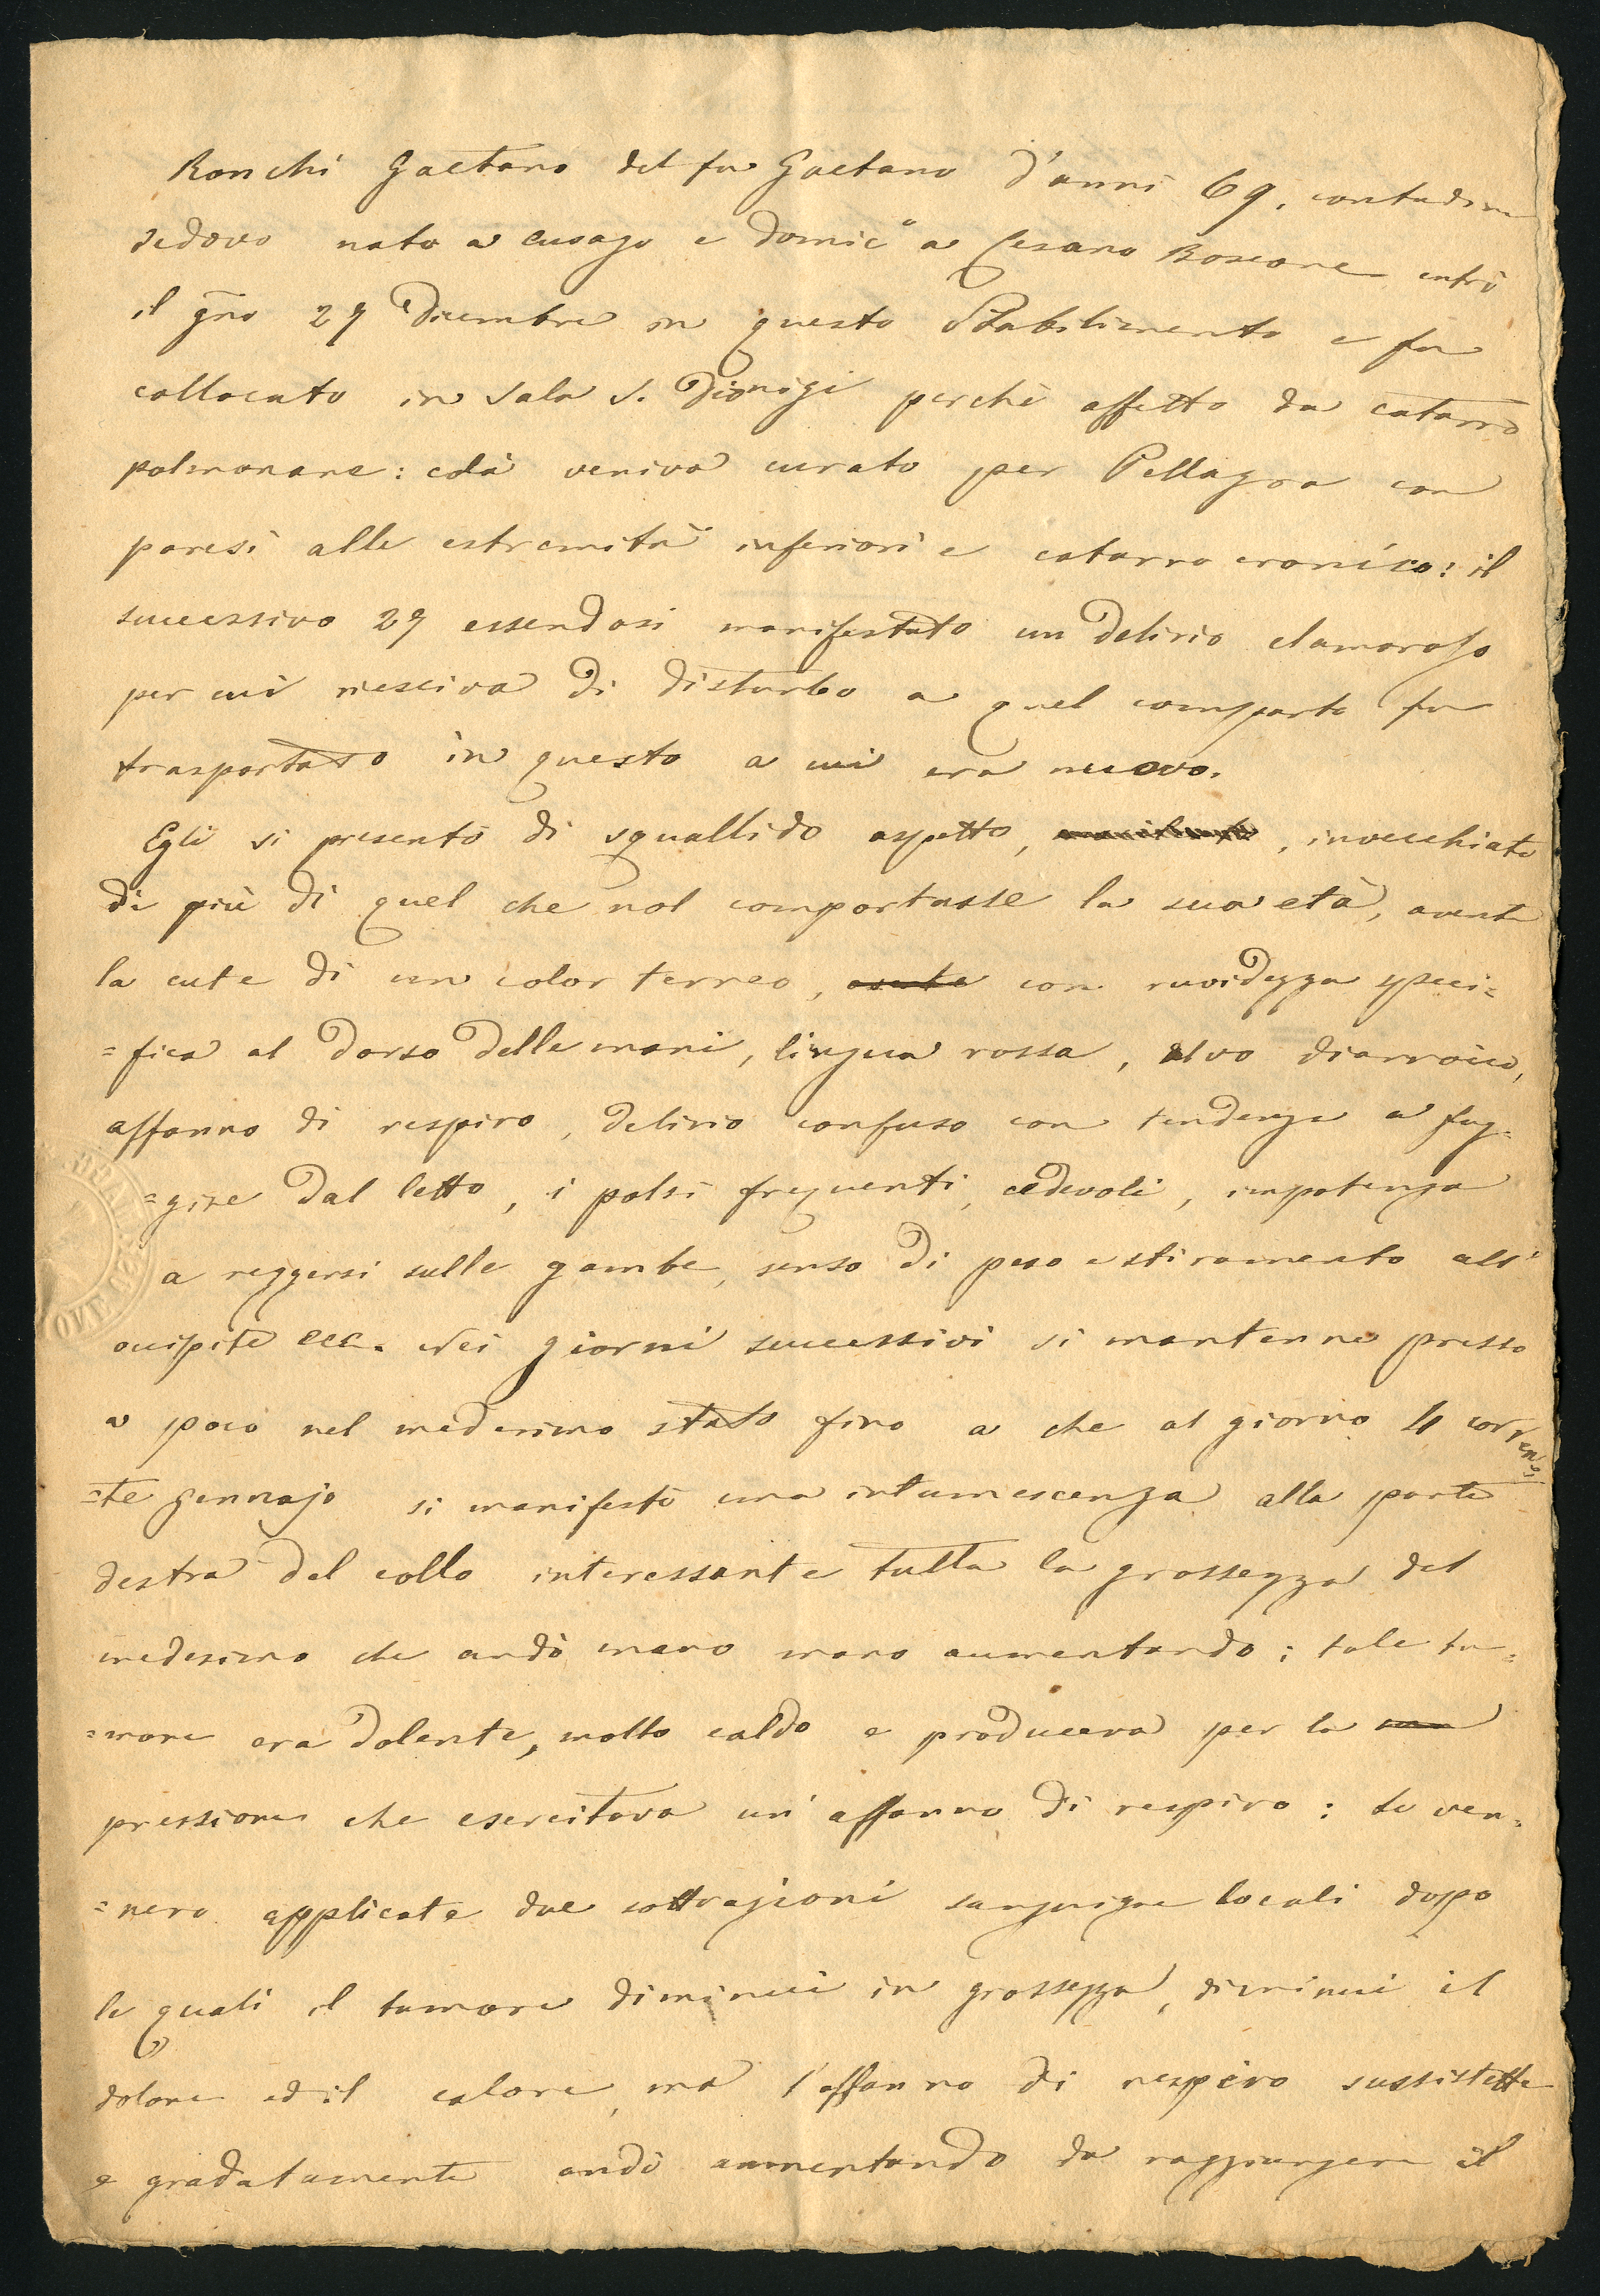 Ronchi Gaetano del fu Gaetano d'anni 69, contadino
vedovo nato a Cusago e domic.° a Cesano Boscone entrò
il gno 27 Dicembre in questo Stabilimento e fu
collocato in Sala S. Dionigi perchè affetto da catarro
polmonare: colà veniva curato per Pellagra con
paresi alle estremità inferiori e catarro cronico: il
successivo 29 essendosi manifestato un delirio clamoroso
per cui riesciva di disturbo a quel comparto fu
trasportato in questo a cui era nuovo.
Egli si presentò di squallido aspetto, , invecchiato
di più di quel che nol comportasse la sua età, avente
la cute di un color terreo, avente con ruvidezza speci=
=fica al dorso delle mani, lingua rossa, alvo diarroico,
affanno di respiro, delirio confuso con tendenza a fug=
=gire dal letto, i polsi frequenti, cedevoli, impotenza
a reggersi sulle gambe, senso di peso e stiramento all'
occipite ecc. Nei giorni successivi si mantenne presso
a poco nel medesimo stato fino a che al giorno 4 corren=
=te Gennajo si manifestò una intumescenza alla parte
destra del collo interessante tutta la grossezza del
medesimo che andò mano mano aumentando; tale tu=
=more era dolente, molto caldo e produceva per la
pressione che esercitava un'affanno di respiro: le ven=
=nero applicate due sottrazioni sanguigne locali dopo
le quali il tumore diminuì in grossezza, diminuì il
dolore ed il calore, ma l'affanno di respiro sussistette
e gradatamente andò aumentando da raggiungere il